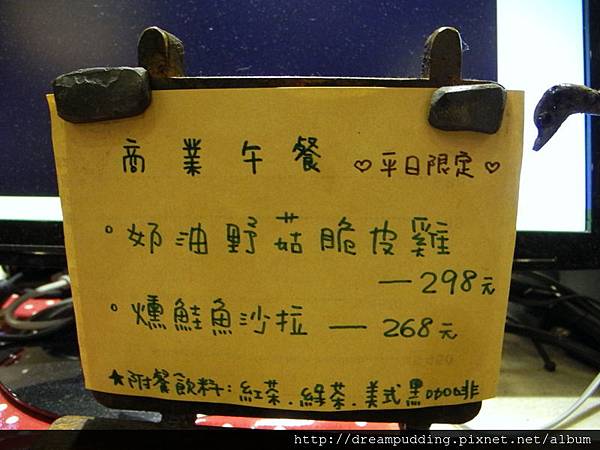 商業午餐 ♡平日限定♡
°奶油野菇脆皮雞
—298元
°燻鮭魚沙拉 — 268元
★附餐飲料:紅茶.綠茶.美式黑咖啡
http://dreampudding.pixnet.net/album